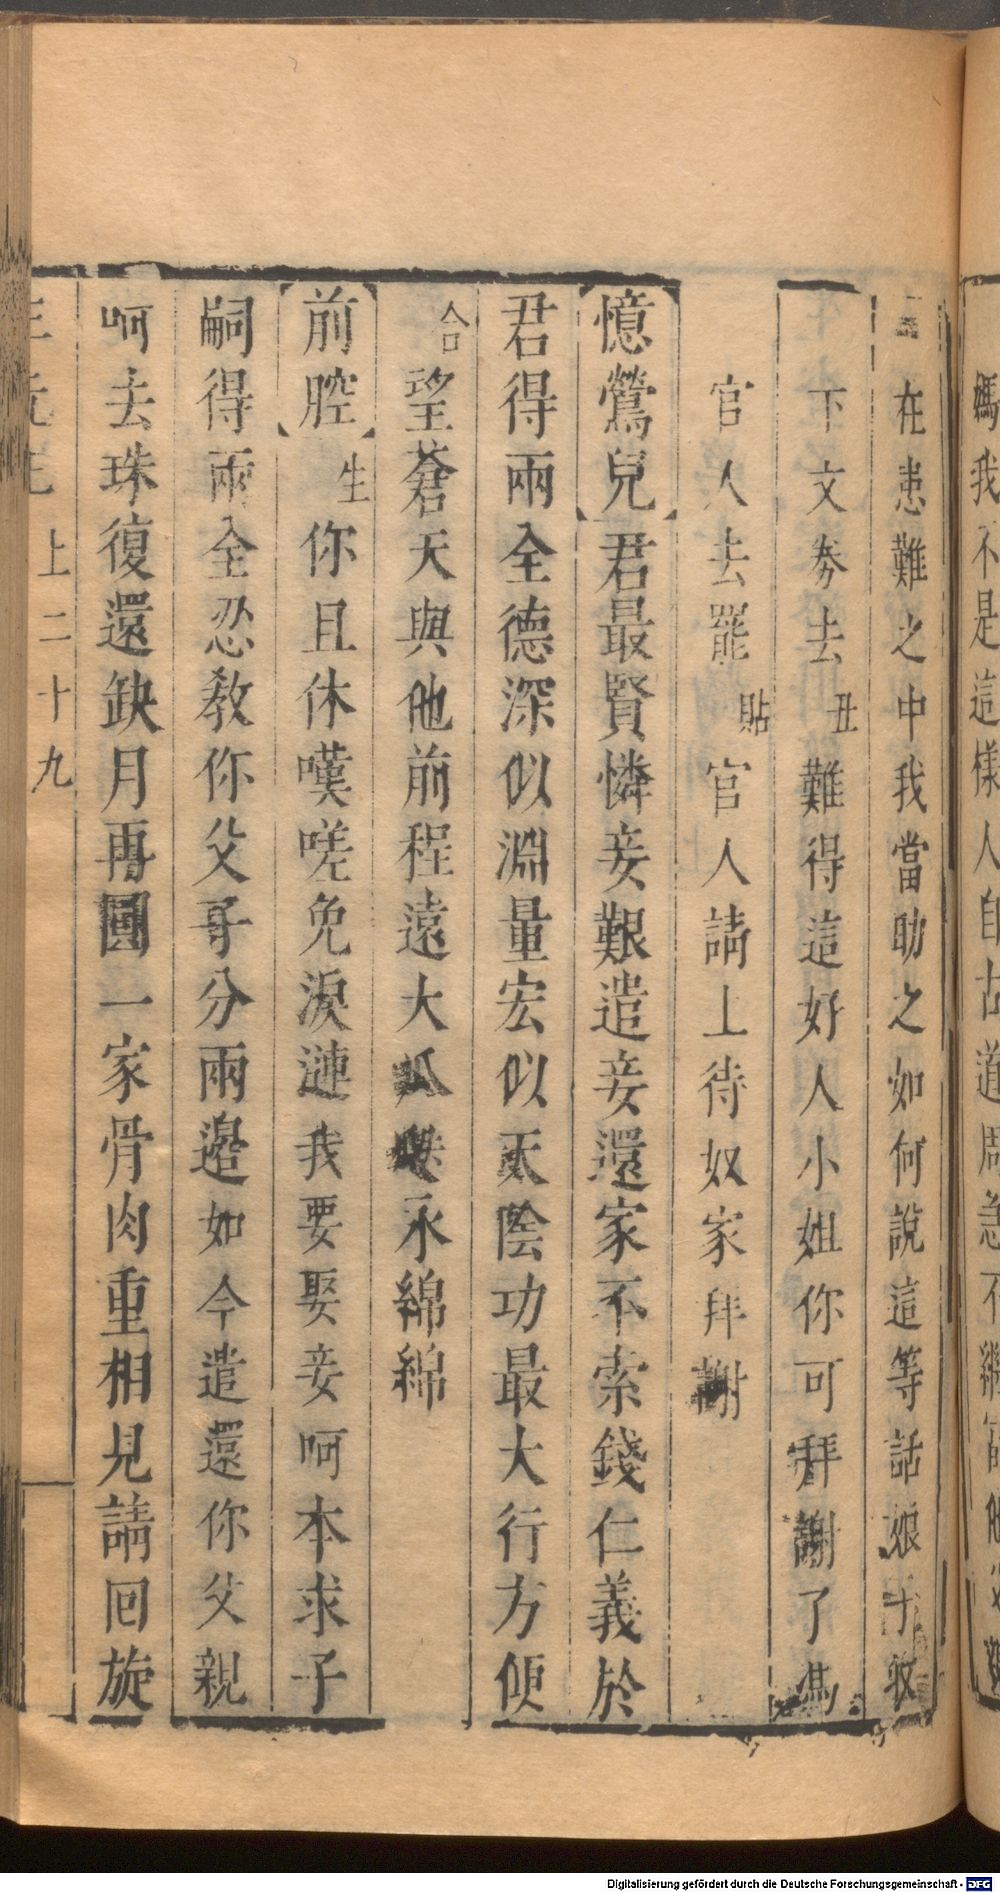 媽我不是這樣人自古道周急不繼富
在患難之中我當助之如何說這等話娘子收
下文劵去丑難得這好人小姐你可拜謝了馮
官人去罷貼官人請上待奴家拜謝
憶鶯兒君最賢憐妾艱遣妾還家不索錢仁義於
君得兩全德深似淵量宏似天陰功最大行方便
合望蒼天與他前程遠大瓜瓞永綿綿
前腔生你且休嘆嗟免淚漣我要娶妾呵本求子
嗣得兩全忍教你父子分兩邊如今遣還你父親
呵去珠復還缺月再圓一家骨肉重相見請回旋
三元记 上二十九
Digitalisierung gefördert durch die Deutsche Forschungsgemeinschaft - DFG